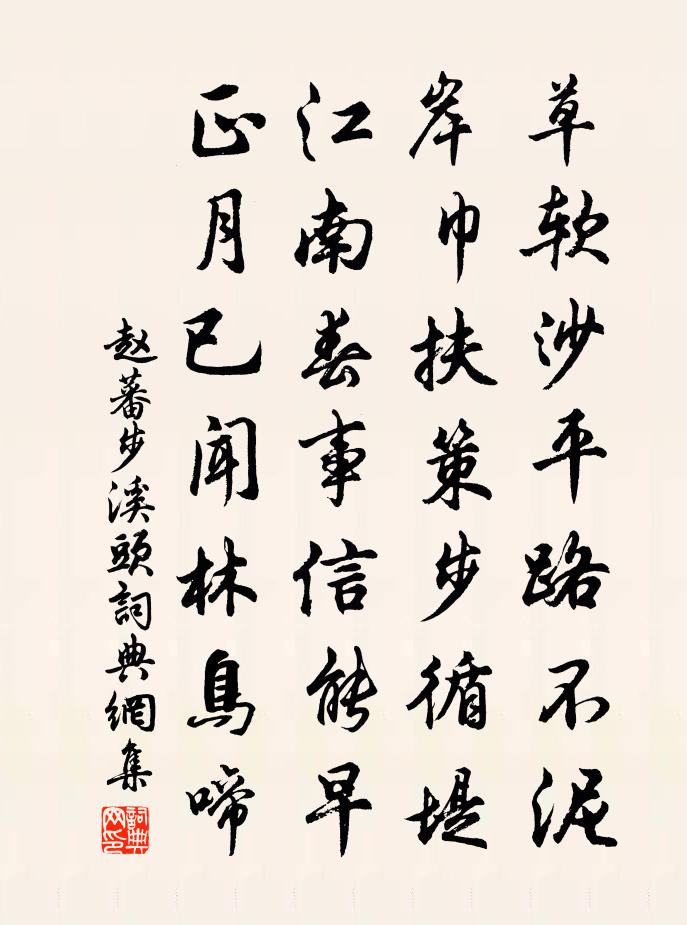 草软沙平路不泥
岸巾扶策步循堤
江南春事信能早
正月已闻林鸟啼
赵蕃步溪頭詞典網集
詞典网印